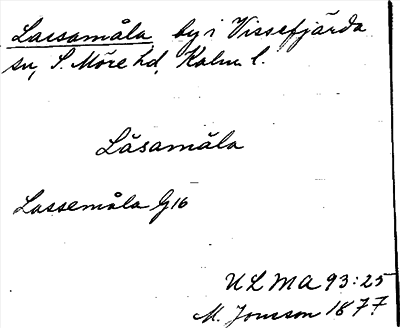 Lassamåla by i Vissefjärda
sn, S. Möre hd, Kalm. l.
Låsamåla
Lassemåla G16
ULMA 93:25
M. Jonsson 1877